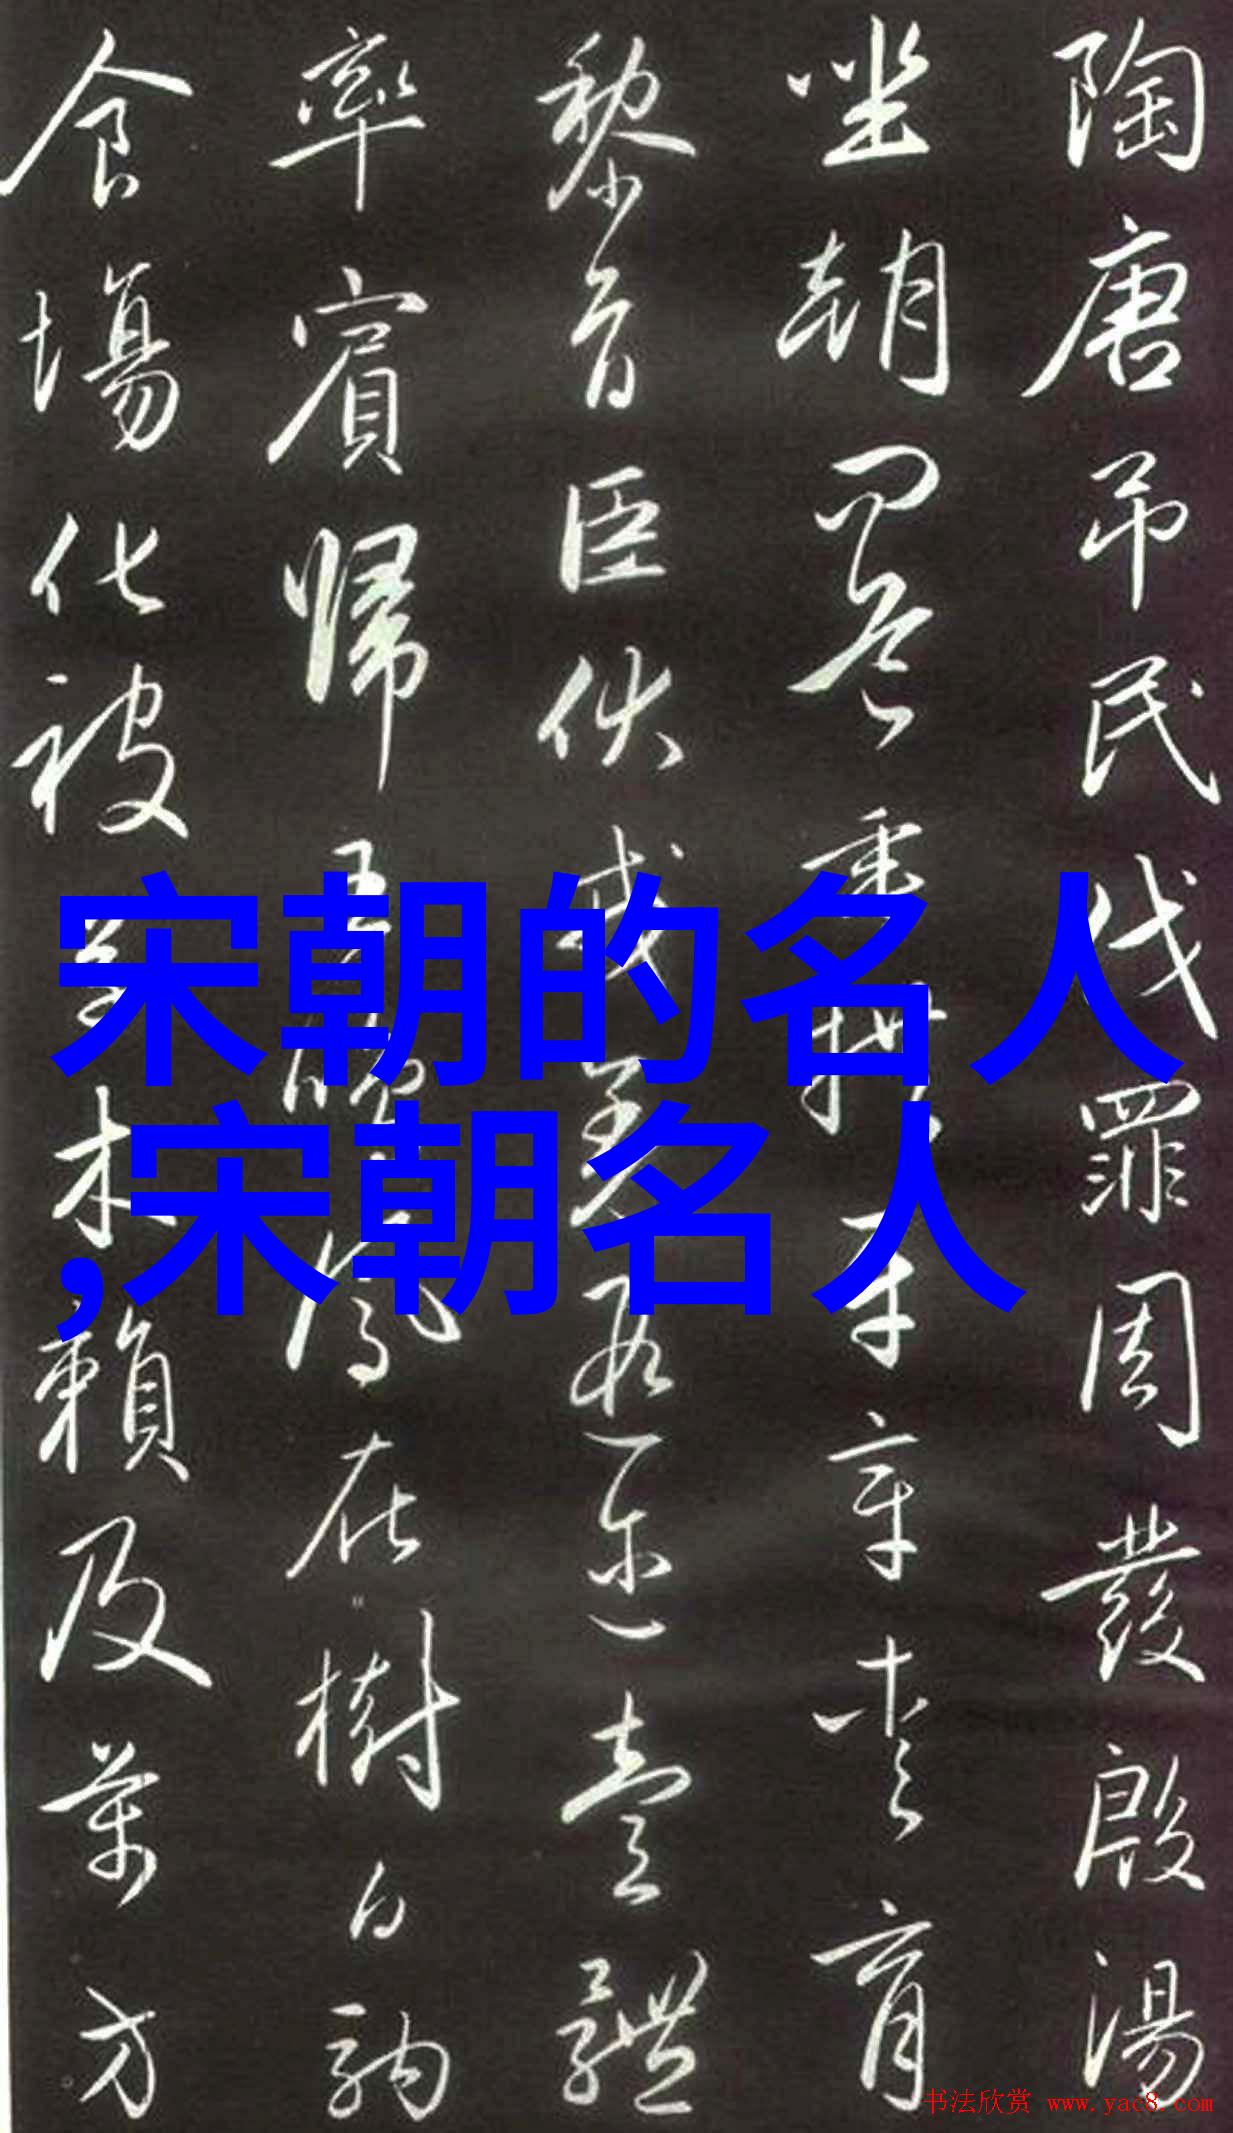 陶唐吊民伐罪周發殷湯
坐朝問道垂拱平章愛育
黎首臣伏戎羌遐邇壹體
率賓歸王鳴鳳在樹白駒
食場化被草木賴及萬方
宋朝的名人
,宋朝名人
书法欣赏 www.yac8.com